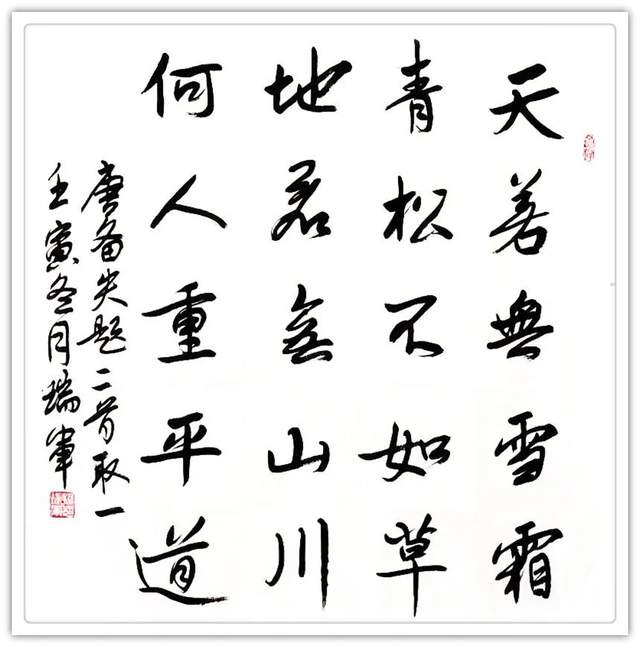 天若無雪霜
青松不如草
地若無山川
何人重平道
唐备失题二首取一
壬寅冬月瑞軍